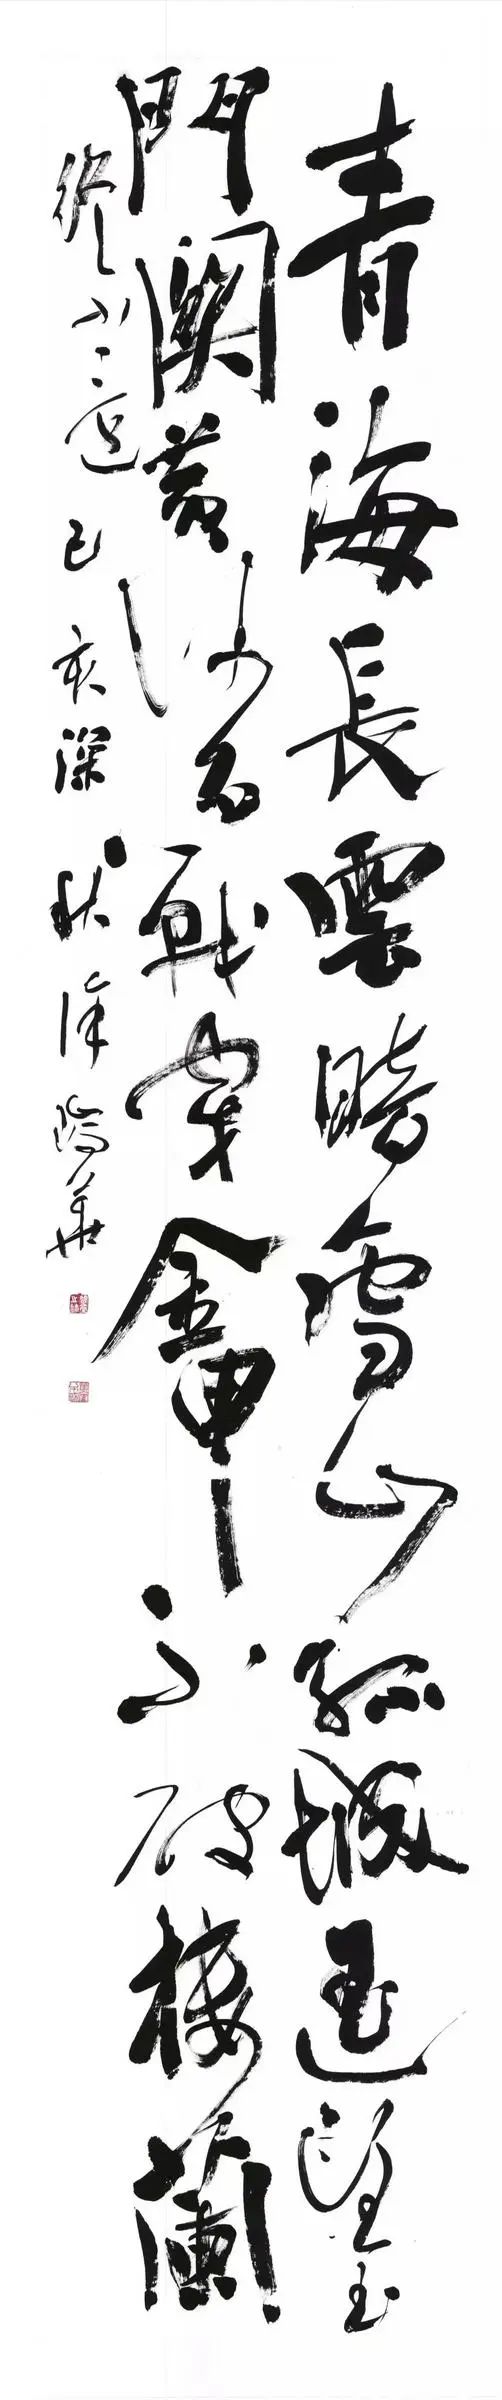 青海長雲暗雪山孤城遥望玉
門關黄沙百戰穿金甲不破樓蘭
終不還己亥深秋華